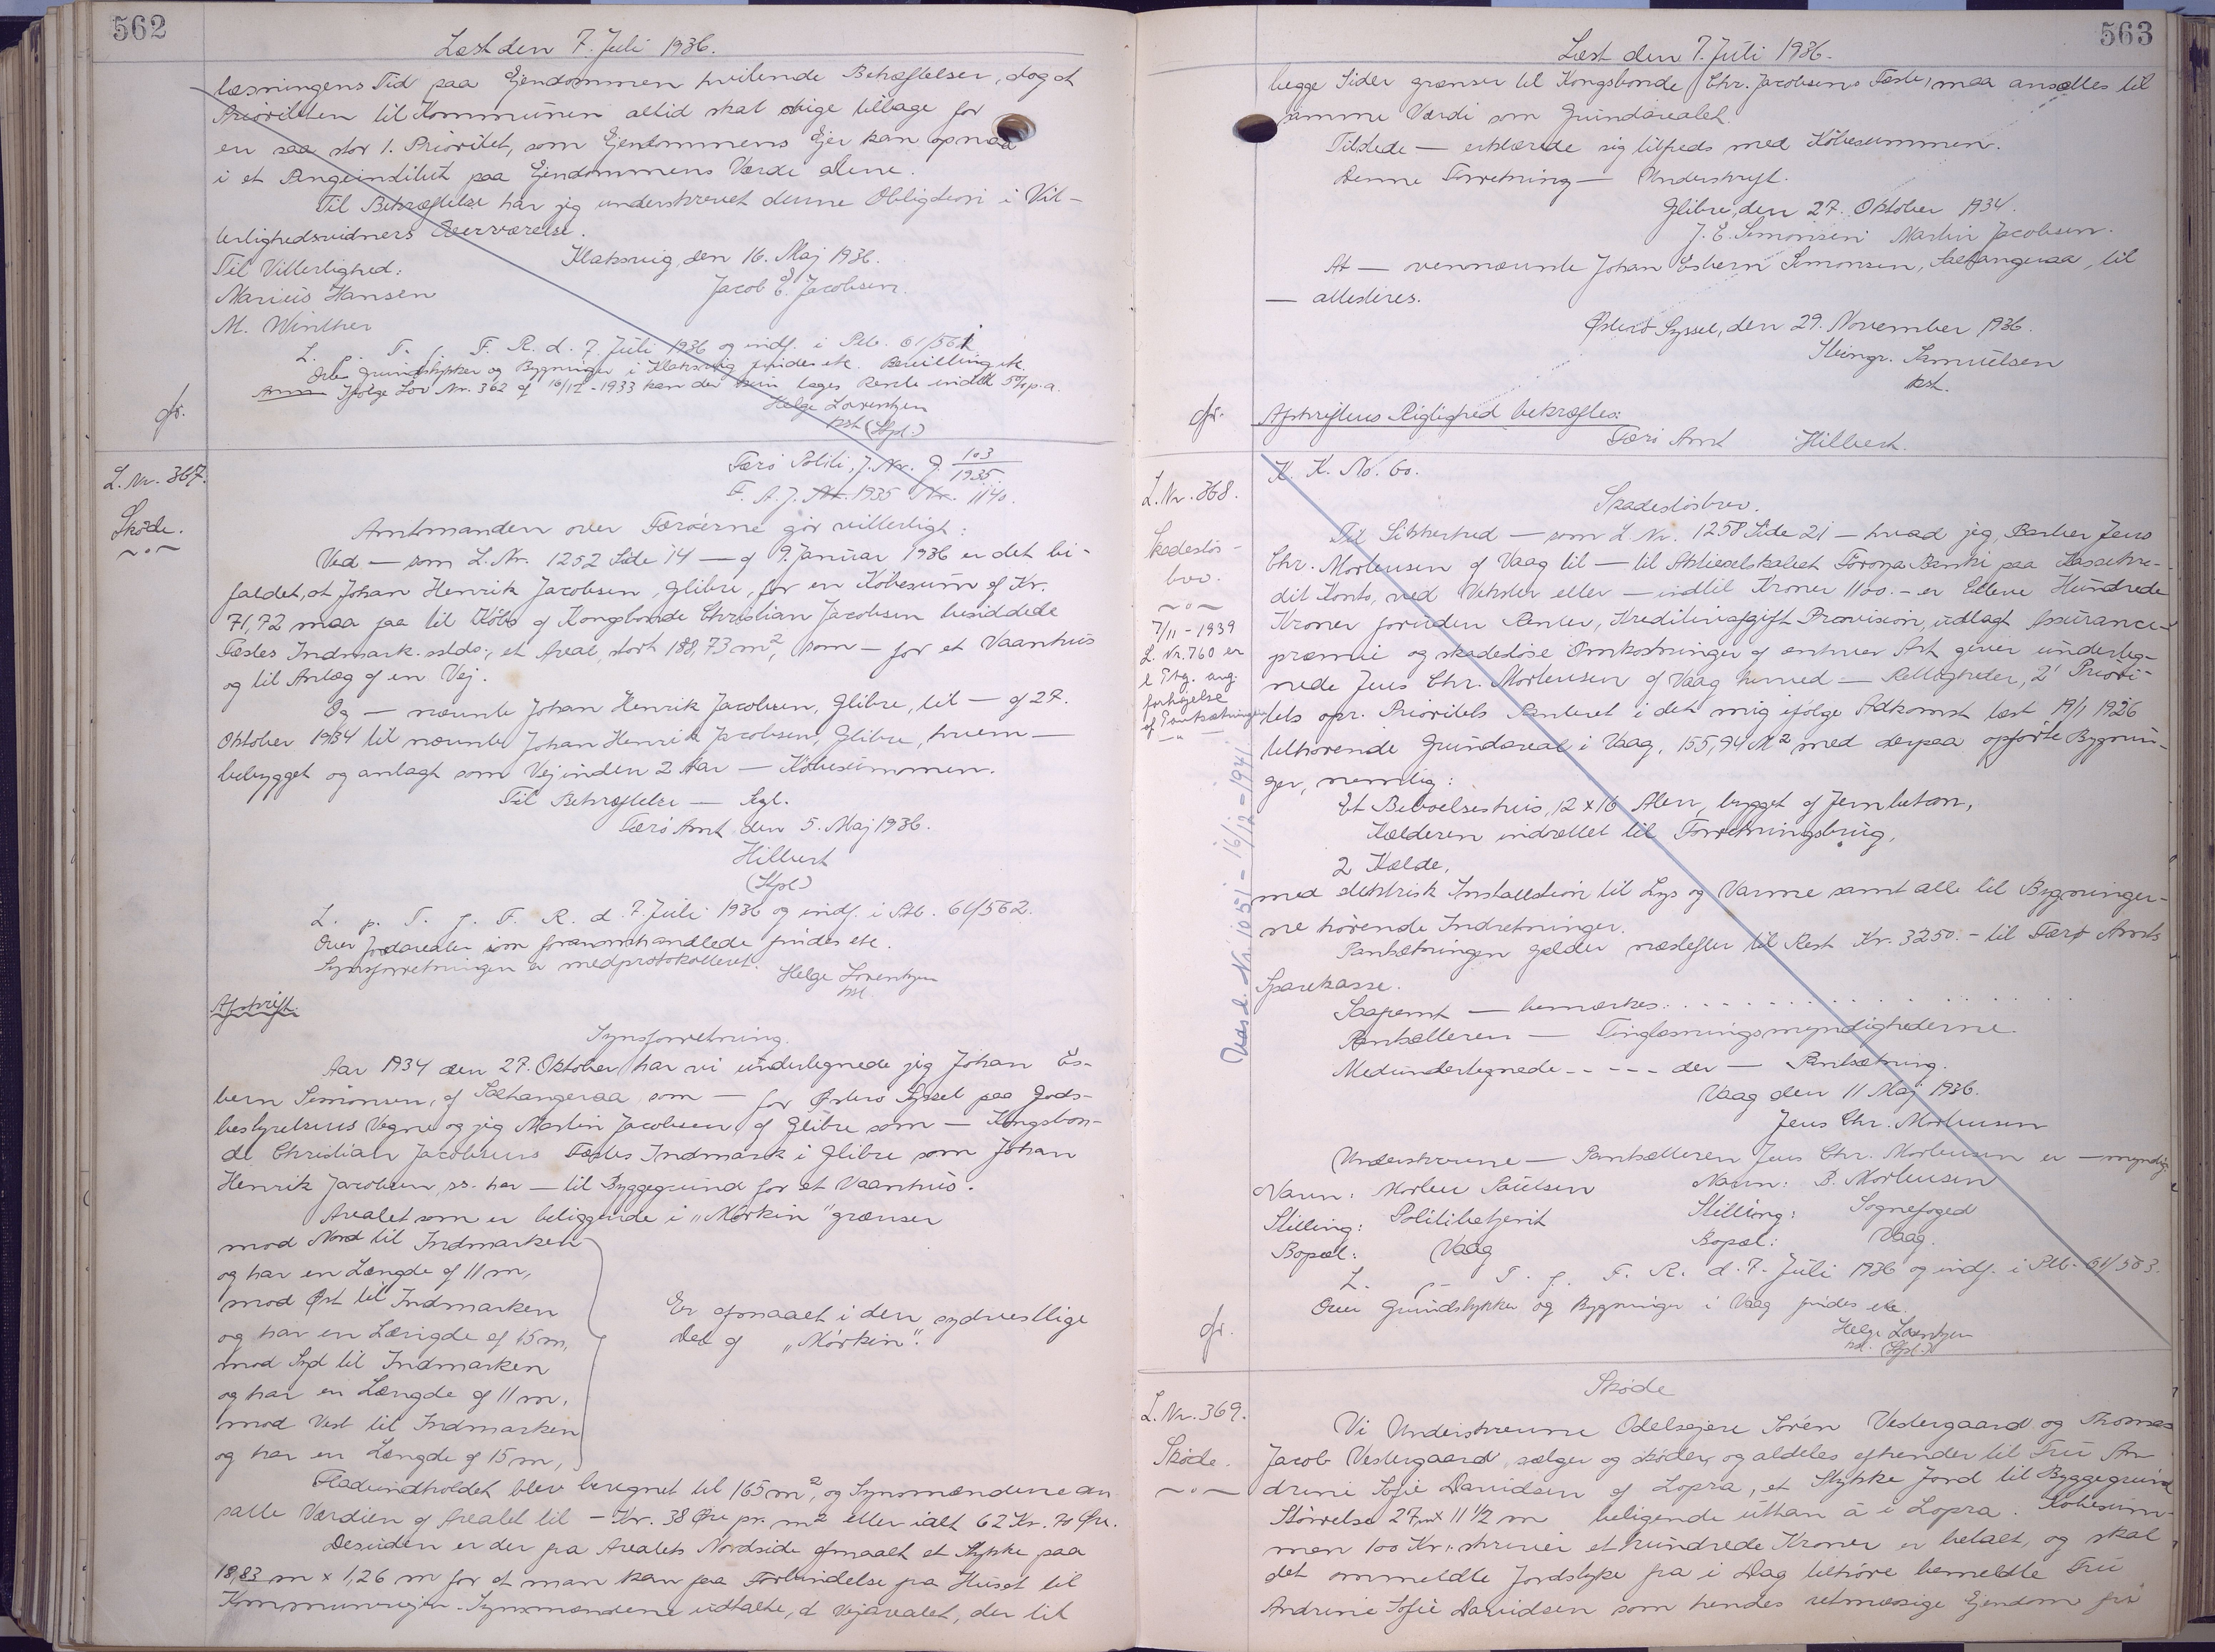 562
Læst den 7. Juli 1936.
læsningens Tid paa Ejendommen hvilende Behæftelser, dog at
Prioriteten til Kommunen altid skal vige tilbage for
en saa stor 1. Prioritet, som Ejendommens Ejer kan opnaa
i et Pengeinstitut paa Ejendommens Værdi alene.
Til Bekræftelse har jeg underskrevet denne Obligation i Vit-
terlighedsvidners Overværelse.
Klaksvig, den 16. Maj 1936.
Til Vitterlighed:
Jacob E. Jacobsen.
Marius Hansen
M. Winther
L. p. T. f. F. R. d. 7. Juli 1936 og indf. i Ptb. 61/561
Over Grundstykker og Bygninger i Klaksvig findes etc. Bevilling etc.
Anm Ifølge Lov Nr. 362 af 16/12-1933 kan der kun tages Rente indtil 5% p.a.
Helge Lorentzen
kst (Stpl.)
gr.
L. Nr. 367.
Skøde.
Færø Politi, J. Nr. J. 103/1935
F. A. J. Nr. 1935 Nr. 1140.
Amtmanden over Færøerne gør vitterligt:
Ved — som L. Nr. 1252 Side 14 — af 9. Januar 1936 er det bi-
faldet, at Johan Henrik Jacobsen, Glibre, for en Købesum af Kr.
71,72 maa faa til Købs af Kongsbonde Christian Jacobsen besiddede
Fæstes Indmark sstds., et Areal, stort 188,73 m², som — for et Vaanhus
og til Anlæg af en Vej.
Og — nævnte Johan Henrik Jacobsen, Glibre, til — af 27.
Oktober 1934 til nævnte Johan Henrik Jacobsen, Glibre, hvem —
bebygget og anlagt som Vej inden 2 Aar — Købesummen.
Til Bekræftelse — Segl.
Færø Amt den 5. Maj 1936.
Hilbert
(Stpl)
L. p. T. f. F. R. d. 7. Juli 1936 og indf. i Ptb. 61/562.
Over Jordarealer som foranomhandlede findes etc.
Synsforretningen er medprotokolleret.
Helge Lorentzen
kst
Afskrift.
Synsforretning.
Aar 1934 den 27. Oktober har vi undertegnede jeg Johan Es-
bern Simonsen, af Saltangeraa som — for Østerø Syssel paa Gods-
bestyrelsens Vegne og jeg Martin Jacobsen af Glibre som — Kongsbon-
de Christian Jacobsens Fæstes Indmark i Glibre som Johan
Henrik Jacobsen, ss. har — til Byggegrund for et Vaanhus.
Arealet som er beliggende i "Mørkin" grænser
mod Nord til Indmarken
og har en Længde af 11 m,
mod Øst til Indmarken
og har en Længde af 15 m,
mod Syd til Indmarken
og har en Længde af 11 m,
mod Vest til Indmarken
og har en Længde af 15 m,
Er afmaalt i den sydvestlige
Del af "Mørkin".
Fladeindholdet blev beregnet til 165 m², og Synsmændene an
satte Værdien af Arealet til — Kr. 38 Øre pr. m² eller ialt 62 Kr. 70 Øre.
Desuden er der fra Arealets Nordside afmaalt et Stykke paa
18,83 m x 1,26 m for at man kan faa Forbindelse fra Huset til
Kommunevejen. Synsmændene udtalte, at Vejarealet, der til
563
Læst den 7. Juli 1936.
begge Sider grænser til Kongsbonde Chr. Jacobsens Fæste, maa ansættes til
samme Værdi som Grundarealet.
Tilstede — erklærede sig tilfreds med Købesummen.
Denne Forretning — Underskrift.
Glibre, den 27. Oktober 1934.
J. E. Simonsen Martin Jacobsen.
At — ovennævnte Johan Esbern Simonsen, Saltangeraa, til
— attesteres.
Østerø Syssel, den 29. November 1936.
Steingr. Samuelsen
kst.
gr.
Afskriftens Rigtighed bekræftes:
Færø Amt Hilbert.
L. Nr. 368.
Skadesløs-
brev.
7/11-1939
L. Nr. 760 er
l Ptg. ang.
forhøjelse
af Pantsætningen
Udsl. L. Nr. 1051 - 16/12-1941
K. K. No. 60.
Skadesløsbrev.
Til Sikkerhed — som L Nr. 1258 Side 21 — hvad jeg, Barber Jens
Chr. Mortensen af Vaag til — til Aktieselskabet Föroya Banki paa Kassekre-
dit Konto, ved Veksler eller — indtil Kroner 1100.- er Elleve Hundrede
Kroner foruden Renter, Kreditivafgift Provision, udlagt Assurance-
præmie og skadesløse Omkostninger af enhver Art giver underteg-
nede Jens Chr. Mortensen af Vaag herved — Rettigheder, 2' Priori-
tets opr. Prioritets Panteret i det mig ifølge Adkomst læst 19/1 1926
tilhørende Grundareal i Vaag, 155,94 M² med derpaa opførte Bygnin-
ger, nemlig:
Et Beboelseshus, 12 x 16 Alen, bygget af Jernbeton,
Kælderen indrettet til Forretningsbrug,
2 Kælde,
med elektrisk Installation til Lys og Varme samt alle til Bygninger-
ne hørende Indretninger.
Pantsætningen gælder næstefter til Rest Kr. 3250.- til Færø Amts
Sparekasse.
Saafremt — bemærkes: . . . . . . . . . . . .
Pantsætteren — Tinglæsningsmyndighederne.
Medundertegnede - - - - der — Pantsætning.
Vaag den 11 Maj 1936.
Jens Chr. Mortensen
Underskrevne — Pantsætteren Jens Chr. Mortensen er — myndig.
Navn: Morten Paulsen Navn: D. Mortensen
Stilling: Politibetjent Stilling: Sognefoged
Bopæl: Vaag Bopæl: Vaag.
L. p. T. f. F. R. d. 7. Juli 1936 og indf. i Ptb. 61/563.
Over Grundstykker og Bygninger i Vaag findes etc.
Helge Lorentzen
kst. (Stpl.)
gr.
L. Nr. 369.
Skøde.
Skøde
Vi Underskrevne Odelsejere Sørén Vestergaard og Thomas
Jacob Vestergaard, sælger og skøder og aldeles afhender til Fru An
drine Sofie Davidsen af Lopra, et Stykke Jord til Byggegrund
Størrelse 27 m x 11 ½ m beligende uttan á i Lopra. Købesum-
men 100 Kr. skriver et hundrede Kroner er betalt, og skal
det ommeldte Jordstyke fra i Dag tilhøre bemeldte Fru
Andrine Sofie Davidsen som hendes retmæssige Ejendom fri